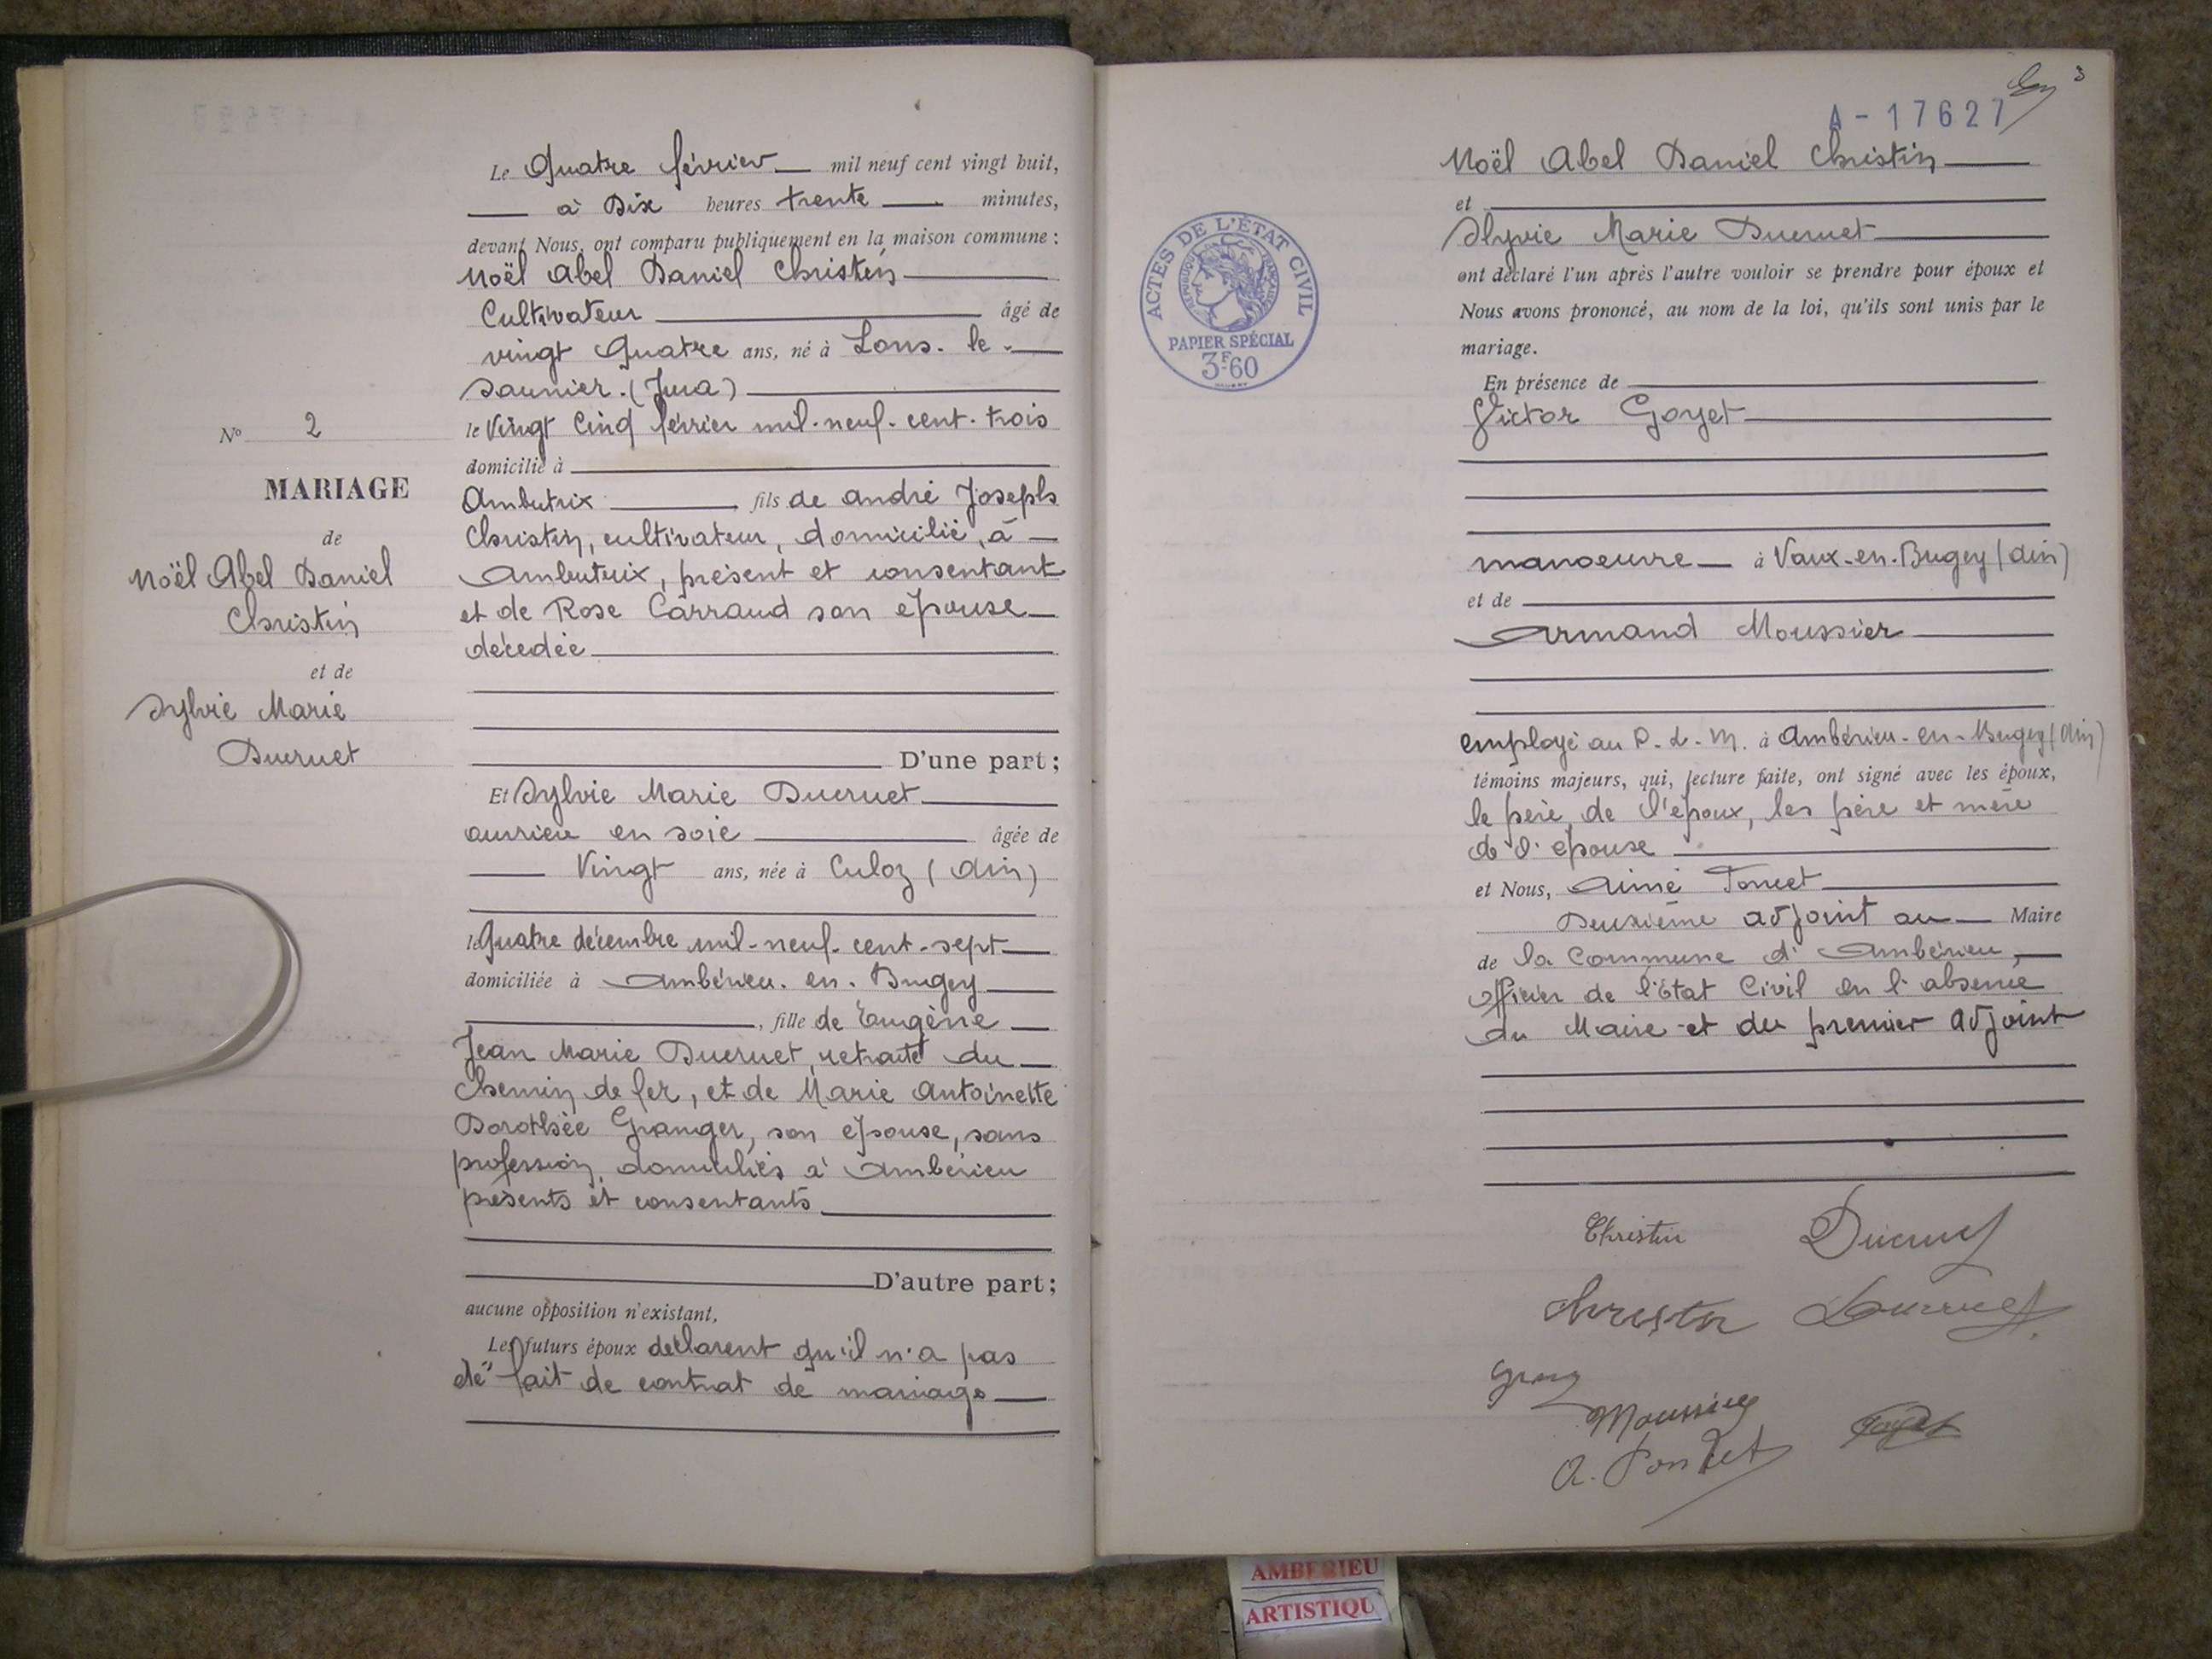 Le Quatre février mil neuf cent vingt huit,
à Dix heures trente minutes,
devant Nous, ont comparu publiquement en la maison commune :
Noël Abel Daniel Christin
Cultivateur âgé de
vingt Quatre ans, né à Lons-le-
Saunier (Jura)
le Vingt Cinq février mil-neuf-cent-trois
domicilié à
Ambutrix fils de André Joseph
Christin, cultivateur, domicilié, à
Ambutrix, présent et consentant
et de Rose Carraud son épouse
décédée
D'une part ;
Et Sylvie Marie Ducruet
ouvrière en soie âgée de
Vingt ans, née à Culoz (Ain)
le Quatre décembre mil-neuf-cent-sept
domiciliée à Ambérieu-en-Bugey
, fille de Eugène
Jean Marie Ducruet, retraité du
Chemin de fer, et de Marie Antoinette
Dorothée Granger, son épouse, sans
profession, domiciliés à Ambérieu
présents et consentants
D'autre part ;
aucune opposition n'existant,
Les futurs époux déclarent qu'il n'a pas
été fait de contrat de mariage
No 2
MARIAGE
de
Noël Abel Daniel
Christin
et de
Sylvie Marie
Ducruet
3
A - 17627
Noël Abel Daniel Christin
et
Sylvie Marie Ducruet
ont déclaré l'un après l'autre vouloir se prendre pour époux et
Nous avons prononcé, au nom de la loi, qu'ils sont unis par le
mariage.
En présence de
Victor Goyet
manoeuvre à Vaux-en-Bugey (Ain)
et de
Armand Moussier
employé au P.L.M. à Ambérieu-en-Bugey (Ain)
témoins majeurs, qui, lecture faite, ont signé avec les époux,
le père de l'époux, les père et mère
de l'épouse
et Nous, Aimé Poncet
Deuxième adjoint au Maire
de la Commune d'Ambérieu,
officier de l'Etat Civil en l'absence
du Maire et du premier adjoint
ACTES DE L'ÉTAT CIVIL
RÉPUBLIQUE FRANÇAISE
PAPIER SPÉCIAL
3F60
Christin Ducruet
Christin Ducruet
Moussier Goyet
A. Poncet
AMBERIEU
ARTISTIQU